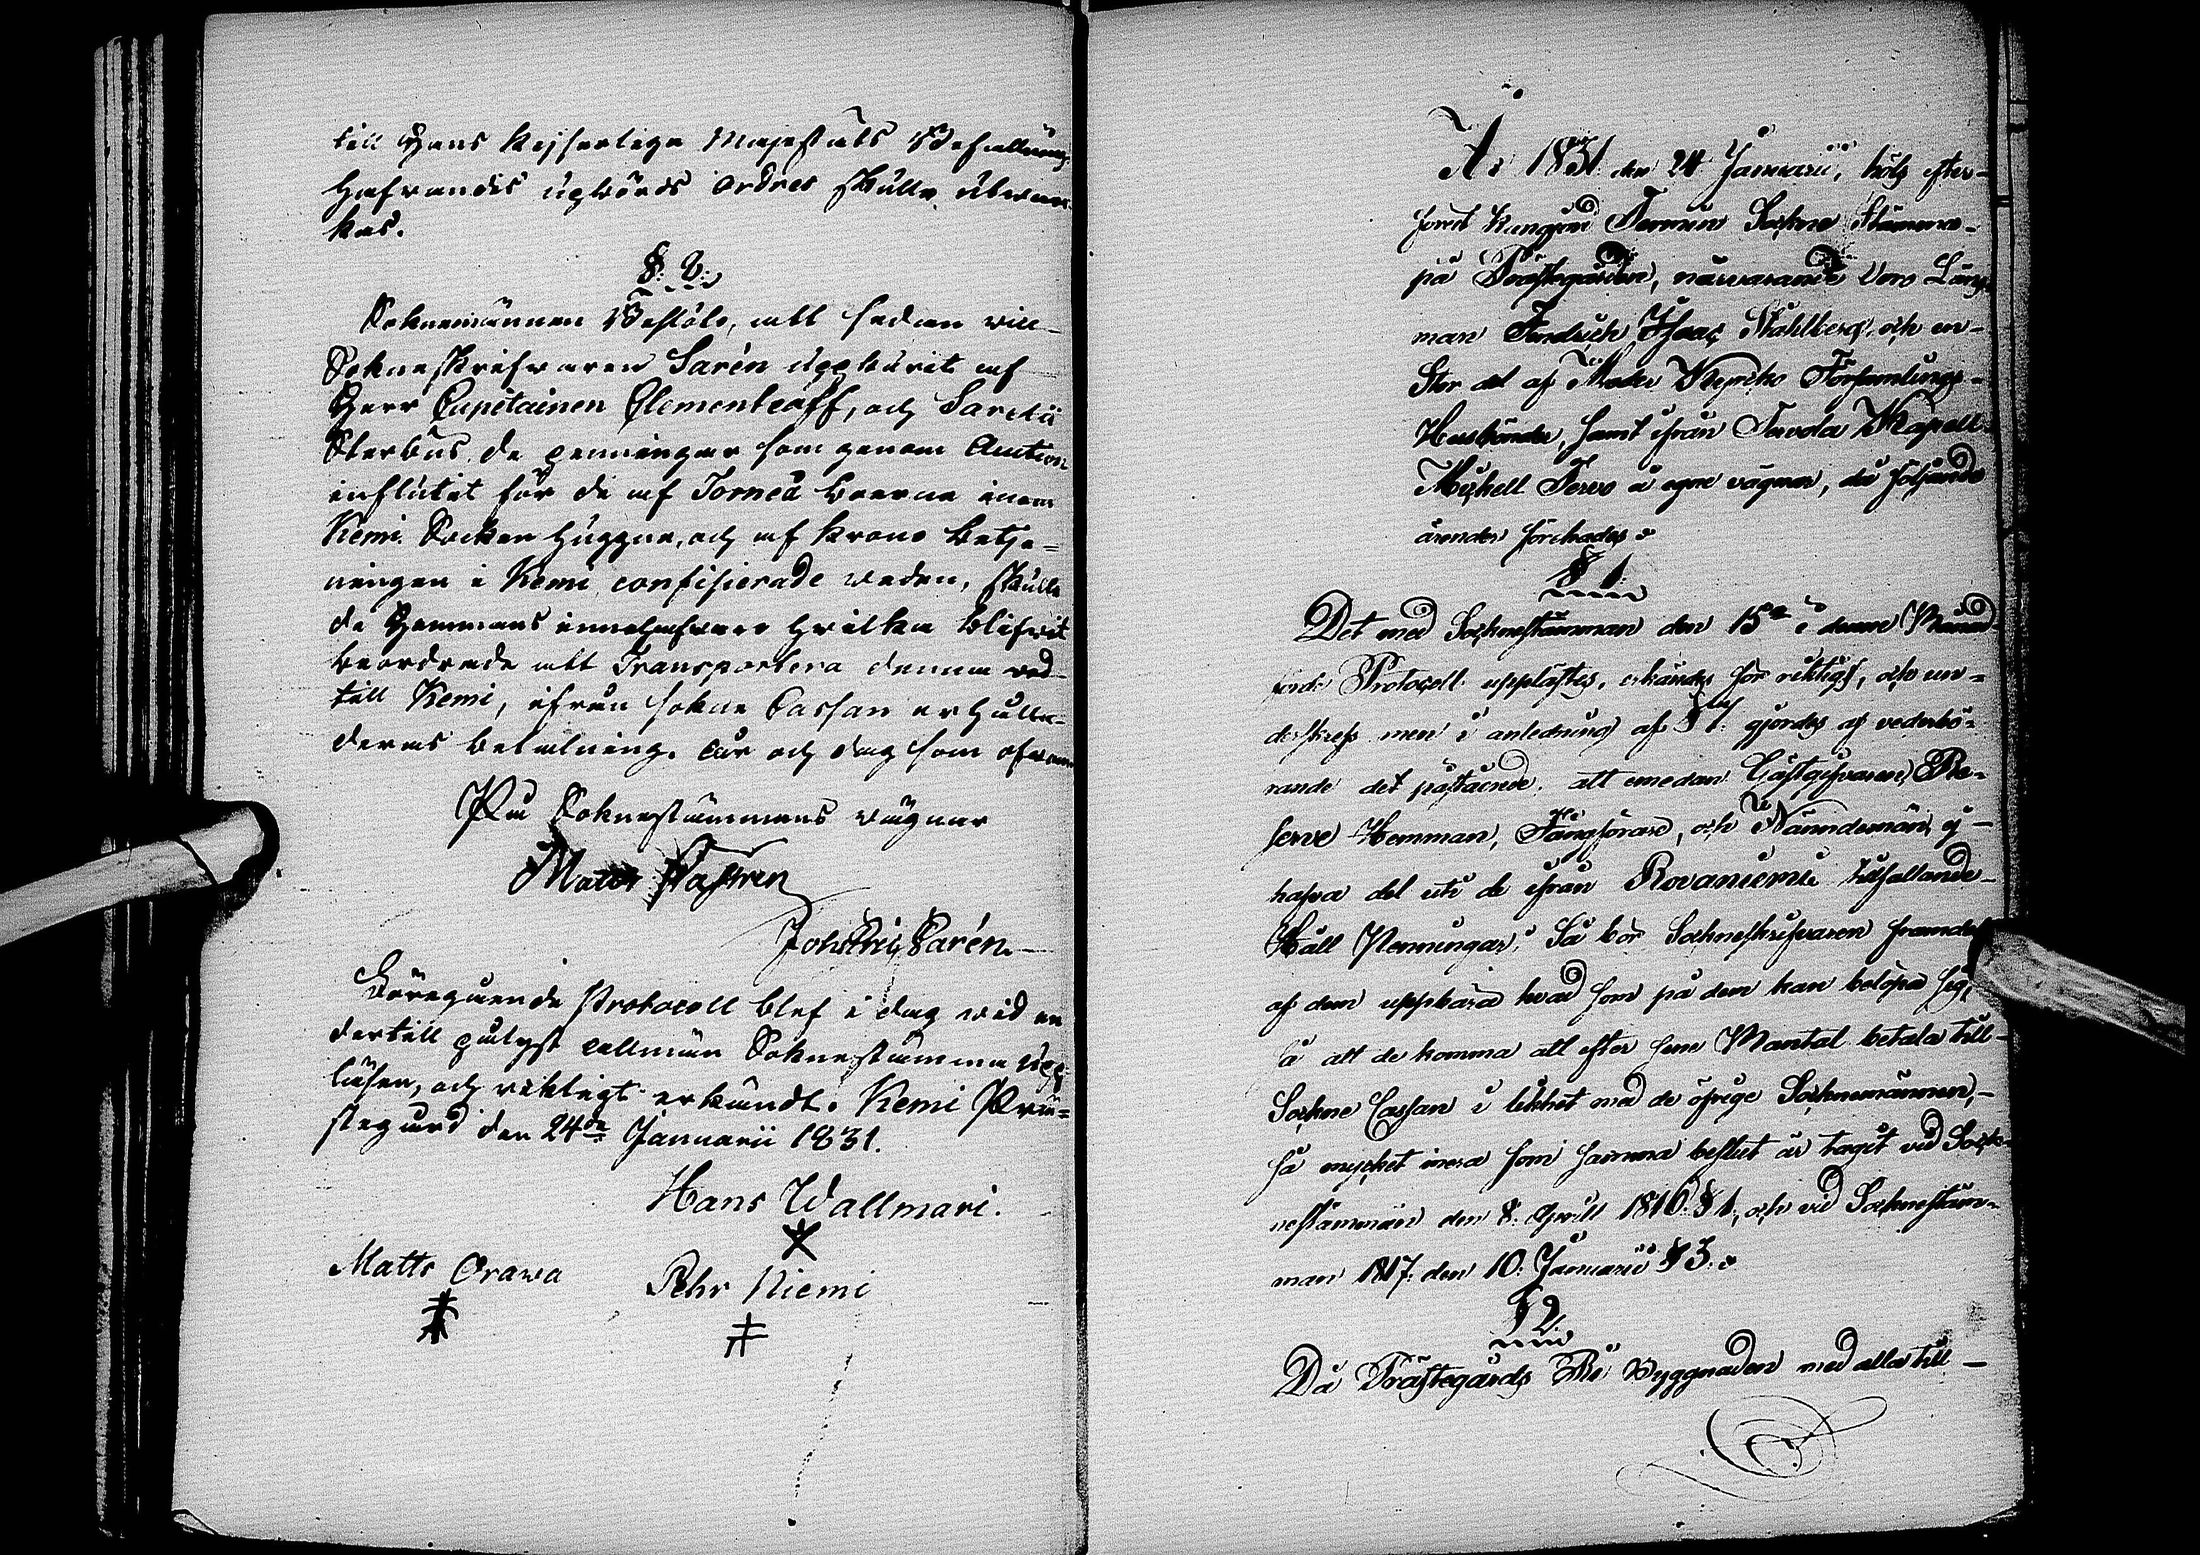 till Hans Kejserliga Majestäts Befallnings
hafwandis ugwörds ordres skulle utwer
kas.
§. 8.
Soknemännen Beslöto, att sedan
Sokneskrifwaren Sarén uppburit af
Herr Capitainen Clementeoff, och
Sterbus de penningar som genom Auction
influtit för de af Torneå boerne inom
Kemi Socken huggne, och af Krono betje=
ningen i Kemi confisierade weden, skulle
de Hemmans innehafware hwilka blifwit
beordrade att Transportera denna wed
till Kemi, ifrån sokne Cassan erhålla
deras betalning. År och dag som ofwan
På Soknestämmans wägnar
Matts Castren
Joh Sarén
Föregående Protocoll blef i dag wid en
dertill pålyst allmän Soknestämma upp
läsen, och riktigt erkändt. Kemi Prä=
stegård den 24de Januarii 1831.
Hans Wallmari.
Matts Orawa
Pehr Niemi
År 1831 den 24 Januarii, höls efter-
förut kungjord Termin Sockne Stämma
på Prästegården, närvarande voro Läns
man Fredrich Isaac Stahlberg, och en
Stor del af Moder Kyrcko Församlings-
Husbönder, samt ifrån Tavola Kapell
Mickell Tervo å egne vägnar, då följande
ärender förehades
§ 1.
Det med Socknestämman den 15de i denne Månad
förde Protocoll upplästes, erkändes för riktigt, och un-
derskrefs men i anledning af § gjordes af vederbö-
rande det påstående, att emedan Gästgifvarene, Re-
serve Hemman, Fångförare, och Nämndemän, ej
hafva del uti de ifrån Rovaniemie tillfallande
Håll Penningar, Så bör Sockneskrifvaren framdeles
af dem uppbära hvad som på dem kan belöpa sig,
så att de komma att efter sine Mantal betala till
Sockne Cassan i likhet med de öfrige Socknemännen,
så mycket mera som samma beslut är tagit vid Sock-
nestämman den 8. Aprill 1816 § 1, och vid Socknestäm-
man 1817 den 10. Januarii § 3.
§ 2
Då Prästegårds Byggnaden med alla till